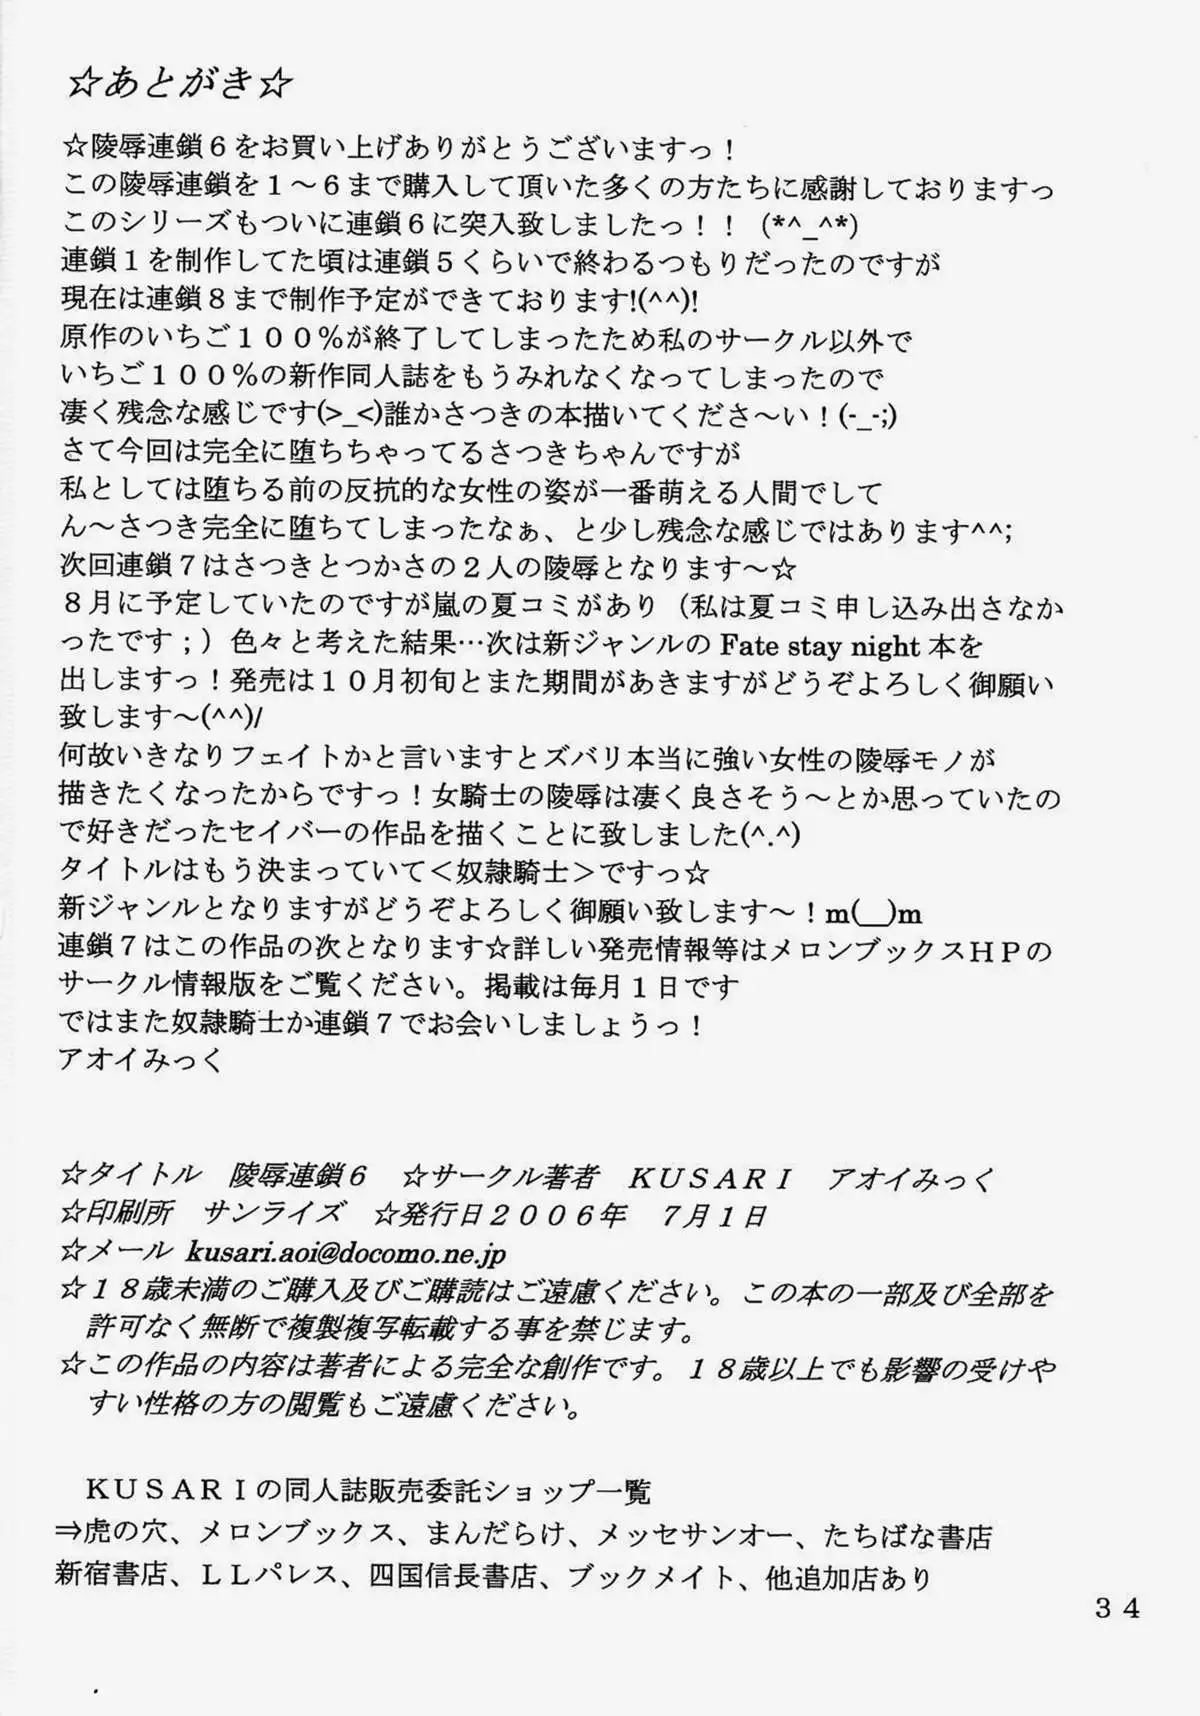 ☆あとがき☆
☆陵辱連鎖６をお買い上げありがとうございますっ！
この陵辱連鎖を１～６まで購入して頂いた多くの方たちに感謝しておりますっ
このシリーズもついに連鎖６に突入致しましたっ！！ (*^_^*)
連鎖１を制作してた頃は連鎖５くらいで終わるつもりだったのですが
現在は連鎖８まで制作予定ができております!(^^)!
原作のいちご１００％が終了してしまったため私のサークル以外で
いちご１００％の新作同人誌をもうみれなくなってしまったので
凄く残念な感じです(>_<)誰かさつきの本描いてくださ～い！(-_-;)
さて今回は完全に堕ちちゃってるさつきちゃんですが
私としては堕ちる前の反抗的な女性の姿が一番萌える人間でして
ん～さつき完全に堕ちてしまったなぁ、と少し残念な感じではあります^^;
次回連鎖７はさつきとつかさの２人の陵辱となります～☆
８月に予定していたのですが嵐の夏コミがあり（私は夏コミ申し込み出さなか
ったです；）色々と考えた結果…次は新ジャンルの Fate stay night 本を
出しますっ！発売は１０月初旬とまた期間があきますがどうぞよろしく御願い
致します～(^^)/
何故いきなりフェイトかと言いますとズバリ本当に強い女性の陵辱モノが
描きたくなったからですっ！女騎士の陵辱は凄く良さそう～とか思っていたの
で好きだったセイバーの作品を描くことに致しました(^.^)
タイトルはもう決まっていて＜奴隷騎士＞ですっ☆
新ジャンルとなりますがどうぞよろしく御願い致します～！m(__)m
連鎖７はこの作品の次となります☆詳しい発売情報等はメロンブックスＨＰの
サークル情報版をご覧ください。掲載は毎月１日です
ではまた奴隷騎士か連鎖７でお会いしましょうっ！
アオイみっく
☆タイトル　陵辱連鎖６　☆サークル著者　ＫＵＳＡＲＩ　アオイみっく
☆印刷所　サンライズ　☆発行日２００６年　７月１日
☆メール kusari.aoi@docomo.ne.jp
☆１８歳未満のご購入及びご購読はご遠慮ください。この本の一部及び全部を
許可なく無断で複製複写転載する事を禁じます。
☆この作品の内容は著者による完全な創作です。１８歳以上でも影響の受けや
すい性格の方の閲覧もご遠慮ください。
ＫＵＳＡＲＩの同人誌販売委託ショップ一覧
⇒虎の穴、メロンブックス、まんだらけ、メッセサンオー、たちばな書店
新宿書店、ＬＬパレス、四国信長書店、ブックメイト、他追加店あり
３４